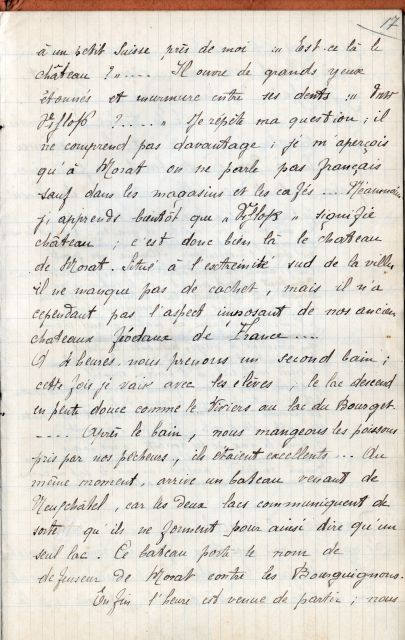 17
à un petit Suisse près de moi " Est-ce là le
château ? " .... Il ouvre de grands yeux
étonnés et murmure entre ses dents "
? .... " Je répète ma question ; il
ne comprend pas davantage ; je m'aperçois
qu'à Morat on ne parle pas français
sauf dans les magasins et les cafés ... Néanmoins
j'y apprends bientôt que " " signifie
château ; c'est donc bien là le château
de Morat. Situé à l'extrémité sud de la ville
il ne manque pas de cachet, mais il n'a
cependant pas l'aspect imposant de nos anciens
chateaux féodaux de France ....
A 4 heures nous prenons un second bain ;
cette fois j'y vais avec les élèves ; le lac descend
en pente douce comme le Viviers au lac du Bourget.
.... Après le bain, nous mangeons les poissons
pris par nos pêcheurs, ils étaient excellents ... Au
même moment, arrive un bateau venant de
Neufchâtel, car les deux lacs communiquent de
sorte qu'ils ne forment pour ainsi dire qu'un
seul lac. Ce bateau porte le nom de
défenseur de Morat contre les Bourguignons.
Enfin l'heure est venue de partir ; nous